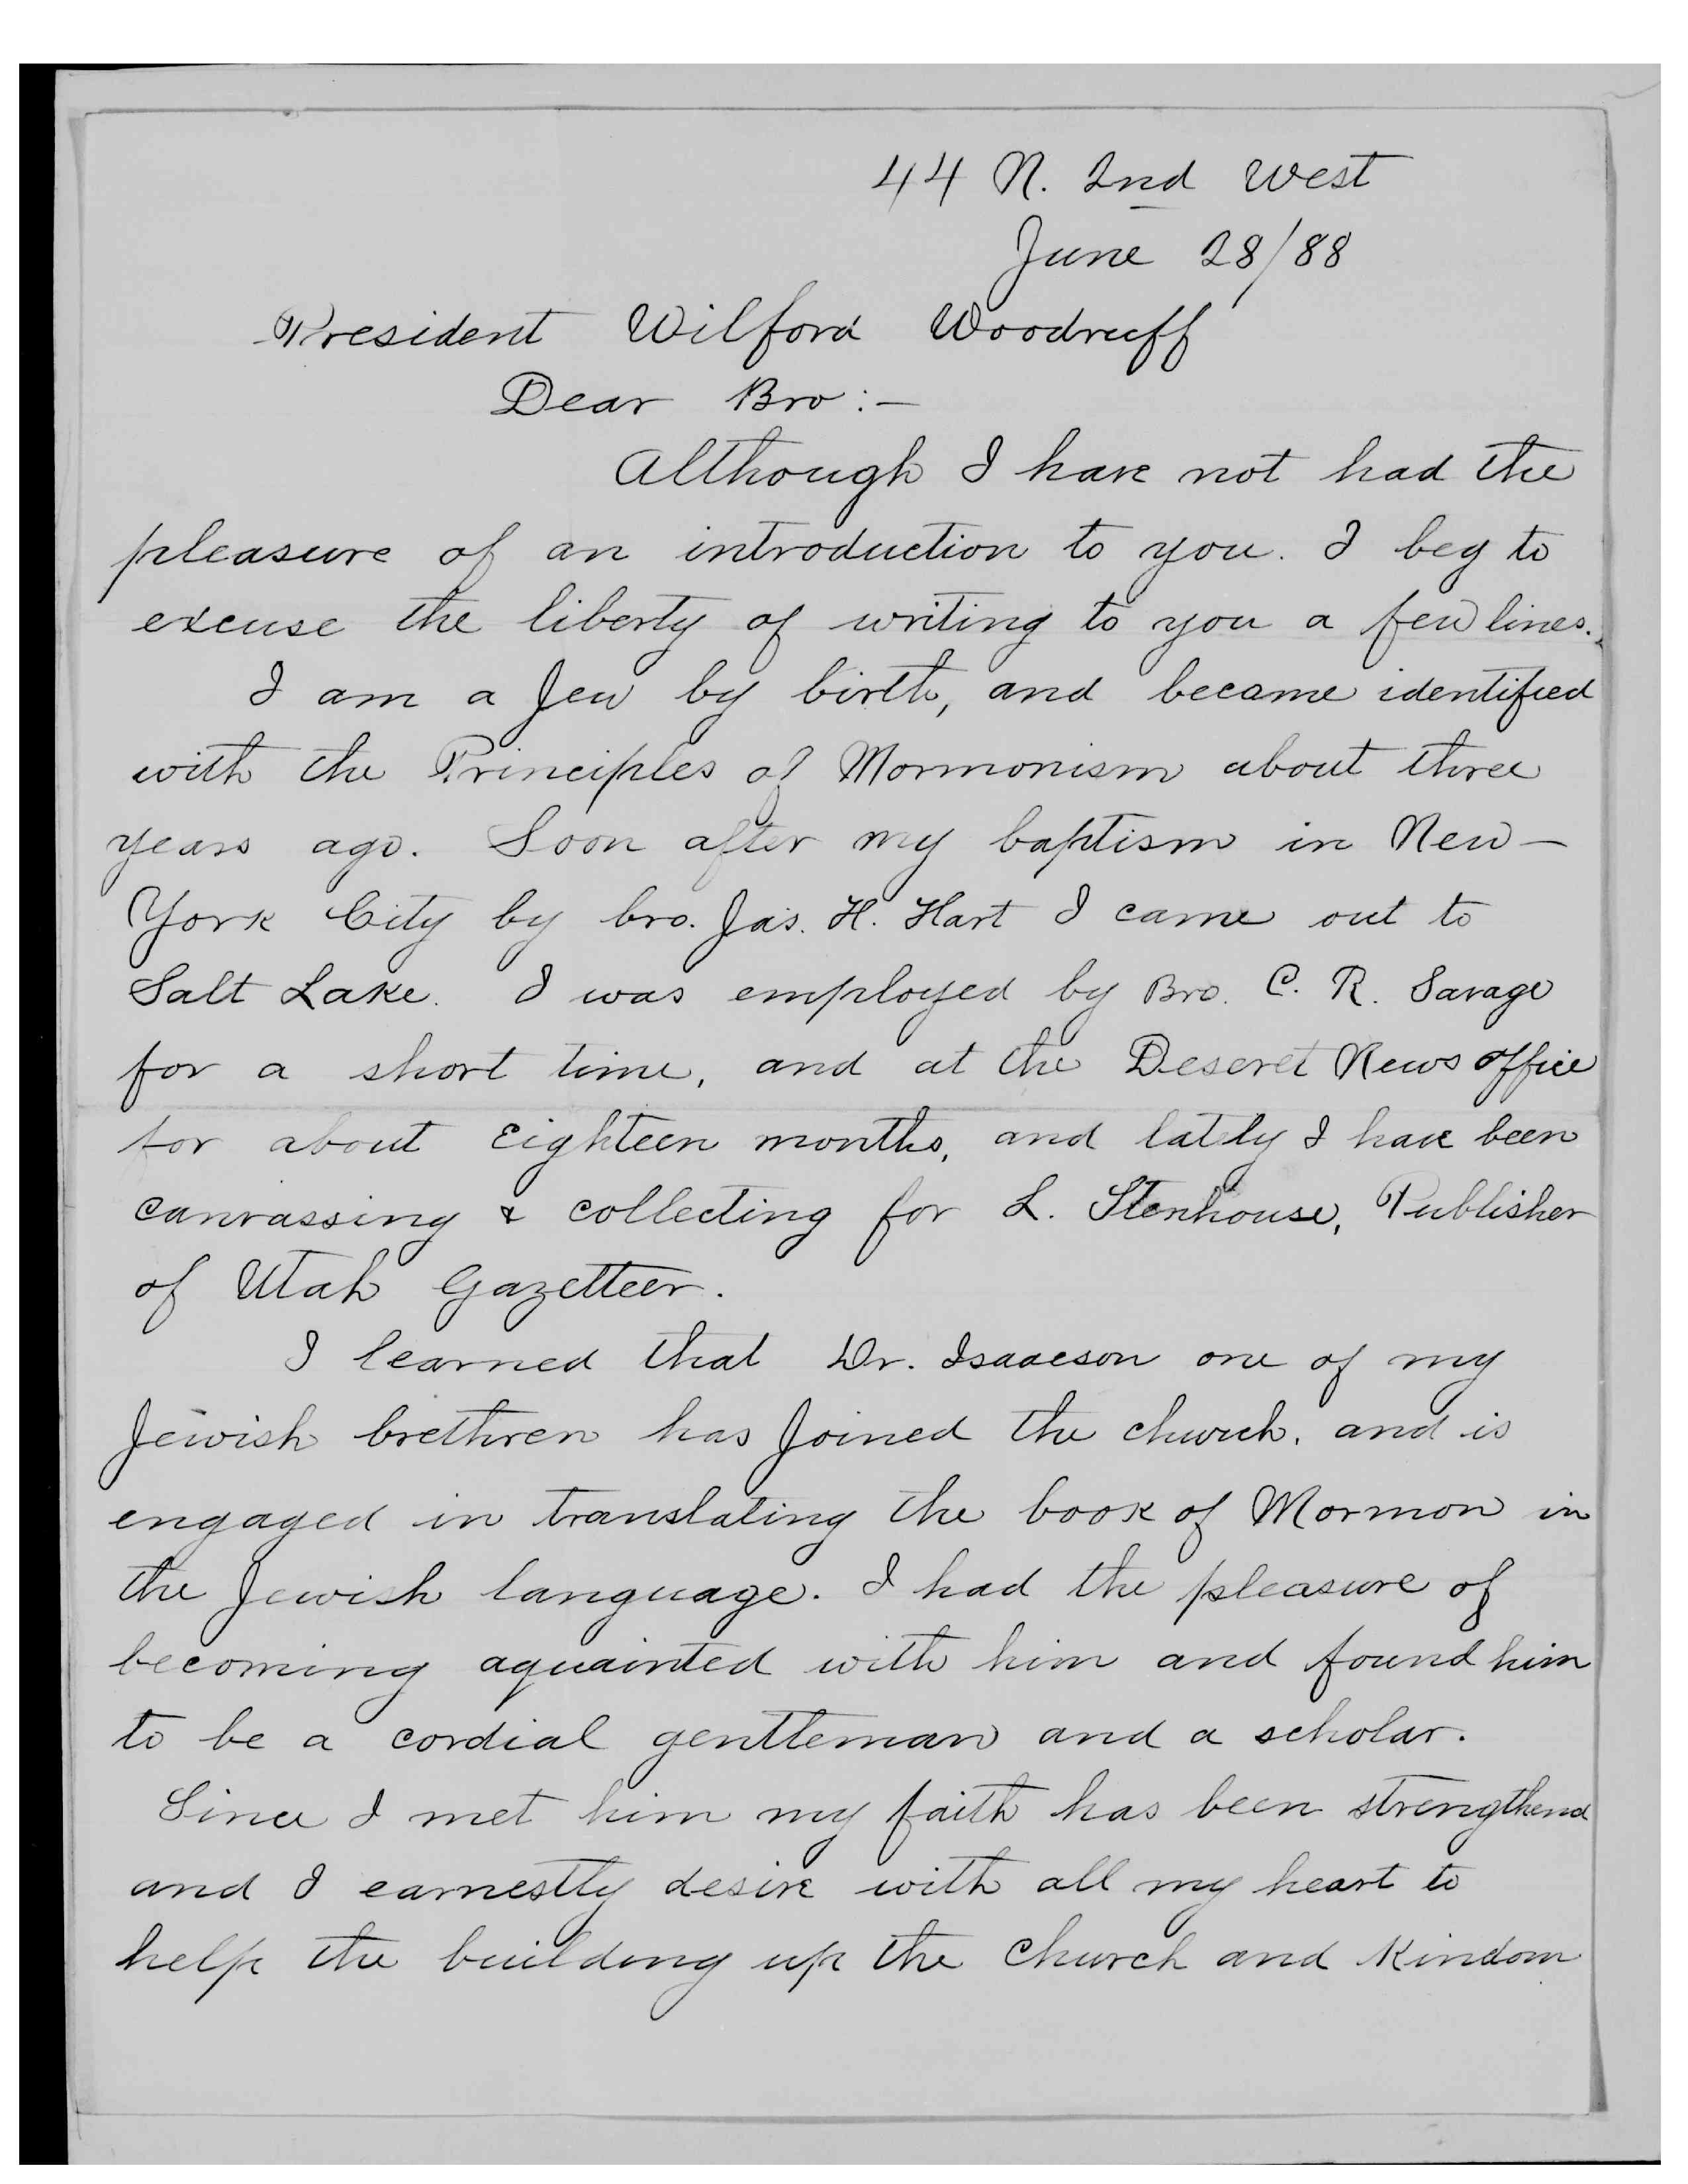 44 N. 2nd West
June 28/88
President Wilford Woodruff
Dear Bro:—
Although I have not had the
pleasure of an introduction to you. I beg to
excuse the liberty of writing to you a few lines.
I am a Jew by birth, and became identified
with the Principles of Mormonism about three
years ago. Soon after my baptism in New-
York City by bro. Jas. H. Hart I came out to
Salt Lake. I was employed by Bro. C. R. Savage
for a short time, and at the Deseret News office
for about Eighteen months, and lately I have been
canvassing & collecting for L. Stenhouse, Publisher
of Utah Gazetteer.
I learned that Dr. Isaacson one of my
Jewish brethren has Joined the church. and is
engaged in translating the book of Mormon in
the Jewish language. I had the pleasure of
becoming aquainted with him and found him
to be a cordial gentleman and a scholar.
Since I met him my faith has been strengthend
and I earnestly desire with all my heart to
help the building up the Church and Kindom